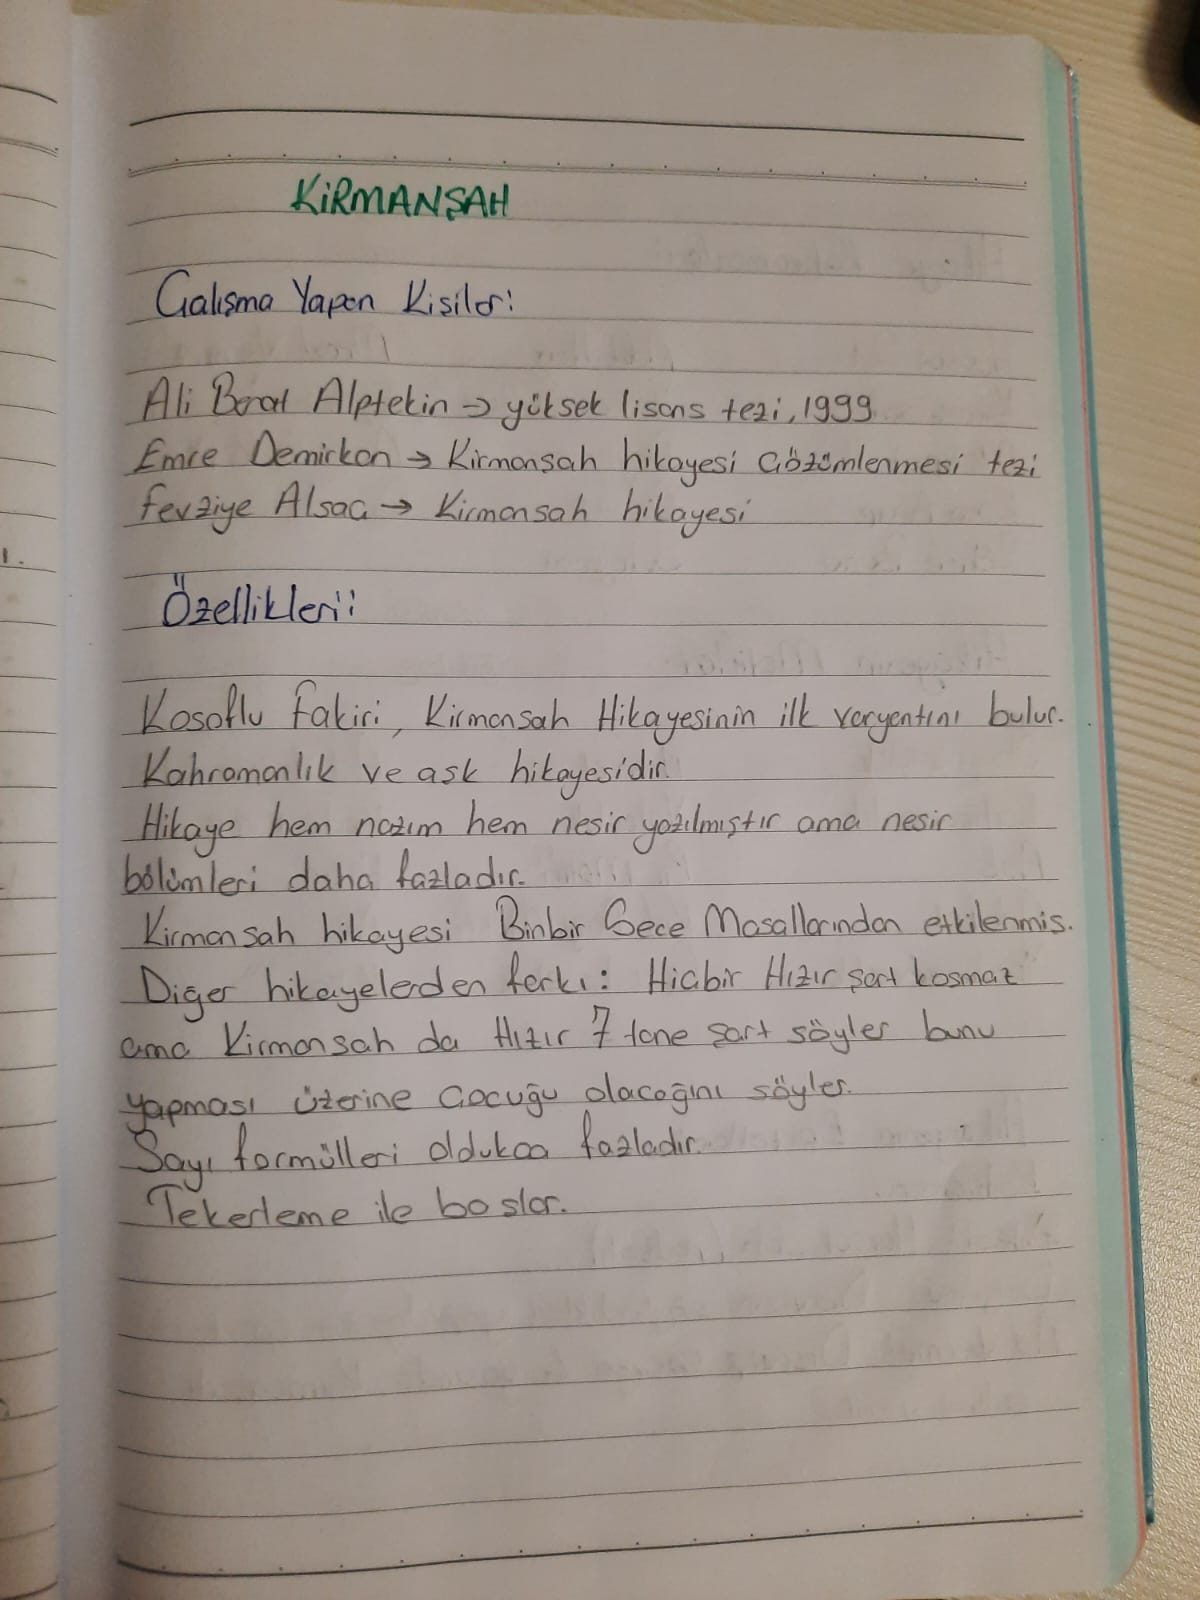 KİRMANŞAH
Çalışma Yapan Kişiler:
Ali Berat Alptekin → yüksek lisans tezi, 1999
Emre Demirkan → Kirmanşah hikayesi Çözümlenmesi tezi
Fevziye Alsaç → Kirmanşah hikayesi
Özellikleri:
Kosoflu Fakiri, Kirmanşah Hikayesinin ilk varyantını bulur.
Kahramanlık ve aşk hikayesidir.
Hikaye hem nazım hem nesir yazılmıştır ama nesir
bölümleri daha fazladır.
Kirmanşah hikayesi Binbir Gece Masallarından etkilenmiş.
Diğer hikayelerden farkı: Hiçbir Hızır şart koşmaz
ama Kirmanşah da Hızır 7 tane şart söyler bunu
yapması üzerine çocuğu olacağını söyler.
Sayı formülleri oldukça fazladır.
Tekerleme ile başlar.